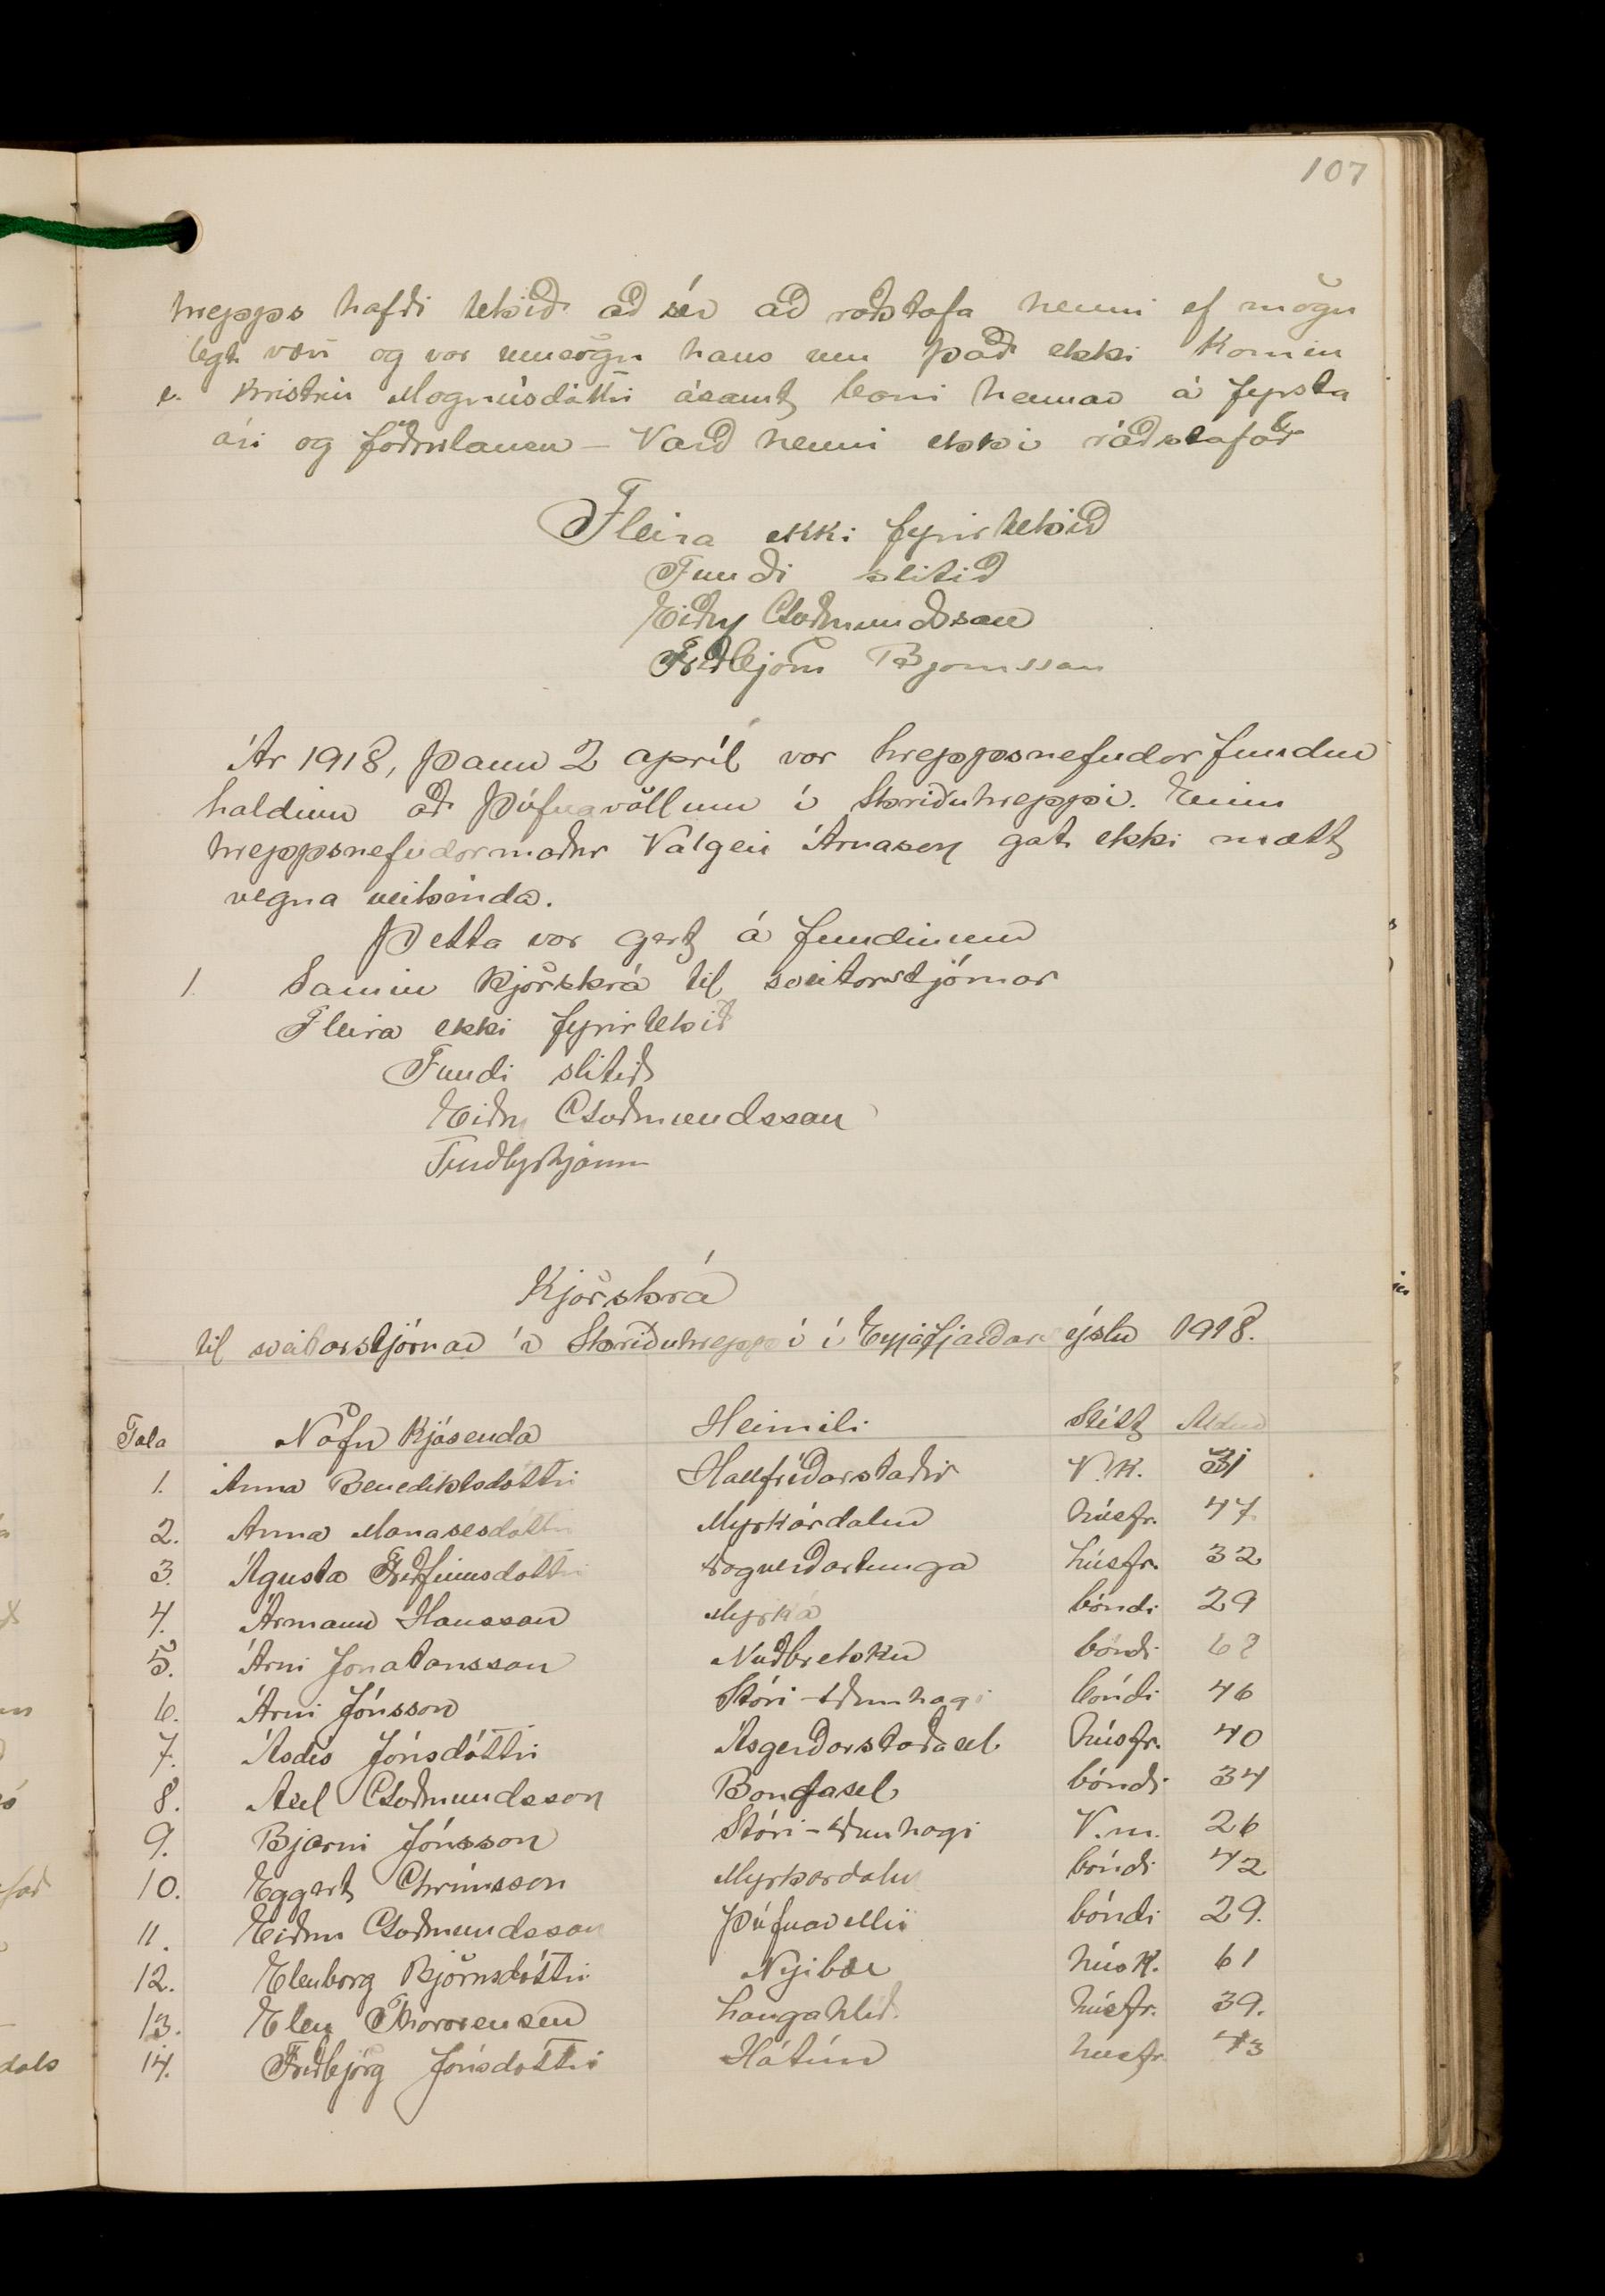 107
hrepps hafði tekið að sér að ráðstafa henni ef mögu
legt væri og var umsögn hans um það ekki komin
e. Kristín Magnúsdóttir ásamt barni hennar á fyrsta
ári og föðurlausu – Varð henni ekki ráðstafað
Fleira ekki fyrirtekið
Fundi slitið
Eiður Guðmundsson
Friðbjörn Björnsson
Ár 1918, þann 2 apríl var hreppsnefndarfundur
haldinn að Þúfnavöllum í Skriðuhreppi. Einn
hreppsnefndarmaður Valgeir Árnason gat ekki mætt
vegna veikinda.
Þetta var gert á fundinum
1. Samin Kjörskrá til sveitarstjórnar
Fleira ekki fyrirtekið
Fundi slitið
Eiður Guðmundsson
Kjörskrá
til sveitarstjórnar í Skriðuhreppi í Eyjafjarðarsýslu 1918.
Tala Nöfn Kjósenda Heimili Stétt Aldur
1. Anna Benediktsdóttir Hallfríðarstaðir V.K. 31
2. Anna Manasesdóttir Myrkárdalur húsfr. 47
3. Ágústa Friðfinnsdóttir húsfr. 32
4. Ármann Hansson Myrká bóndi 29
5. Árni Jónatansson Neðbrekka bóndi
6. Árni Jónsson Stóri-Dunhagi bóndi 46
7. Ásdís Jónsdóttir Ásgerðarstaðasel húsfr. 40
8. Axel Guðmundsson Bongasel bóndi 34
9. Bjarni Jónsson Stóri-Dunhagi V.m. 26
10. Eggert Grímsson Myrkárdalur bóndi 42
11. Eiður Guðmundsson Þúfnavellir bóndi 29.
12. Elenborg Björnsdóttir Nýibær húsk. 61
13. Elen Thorarensen Langahlíð húsfr. 39.
14. Friðbjörg Jónsdóttir Hátún húsfr. 43